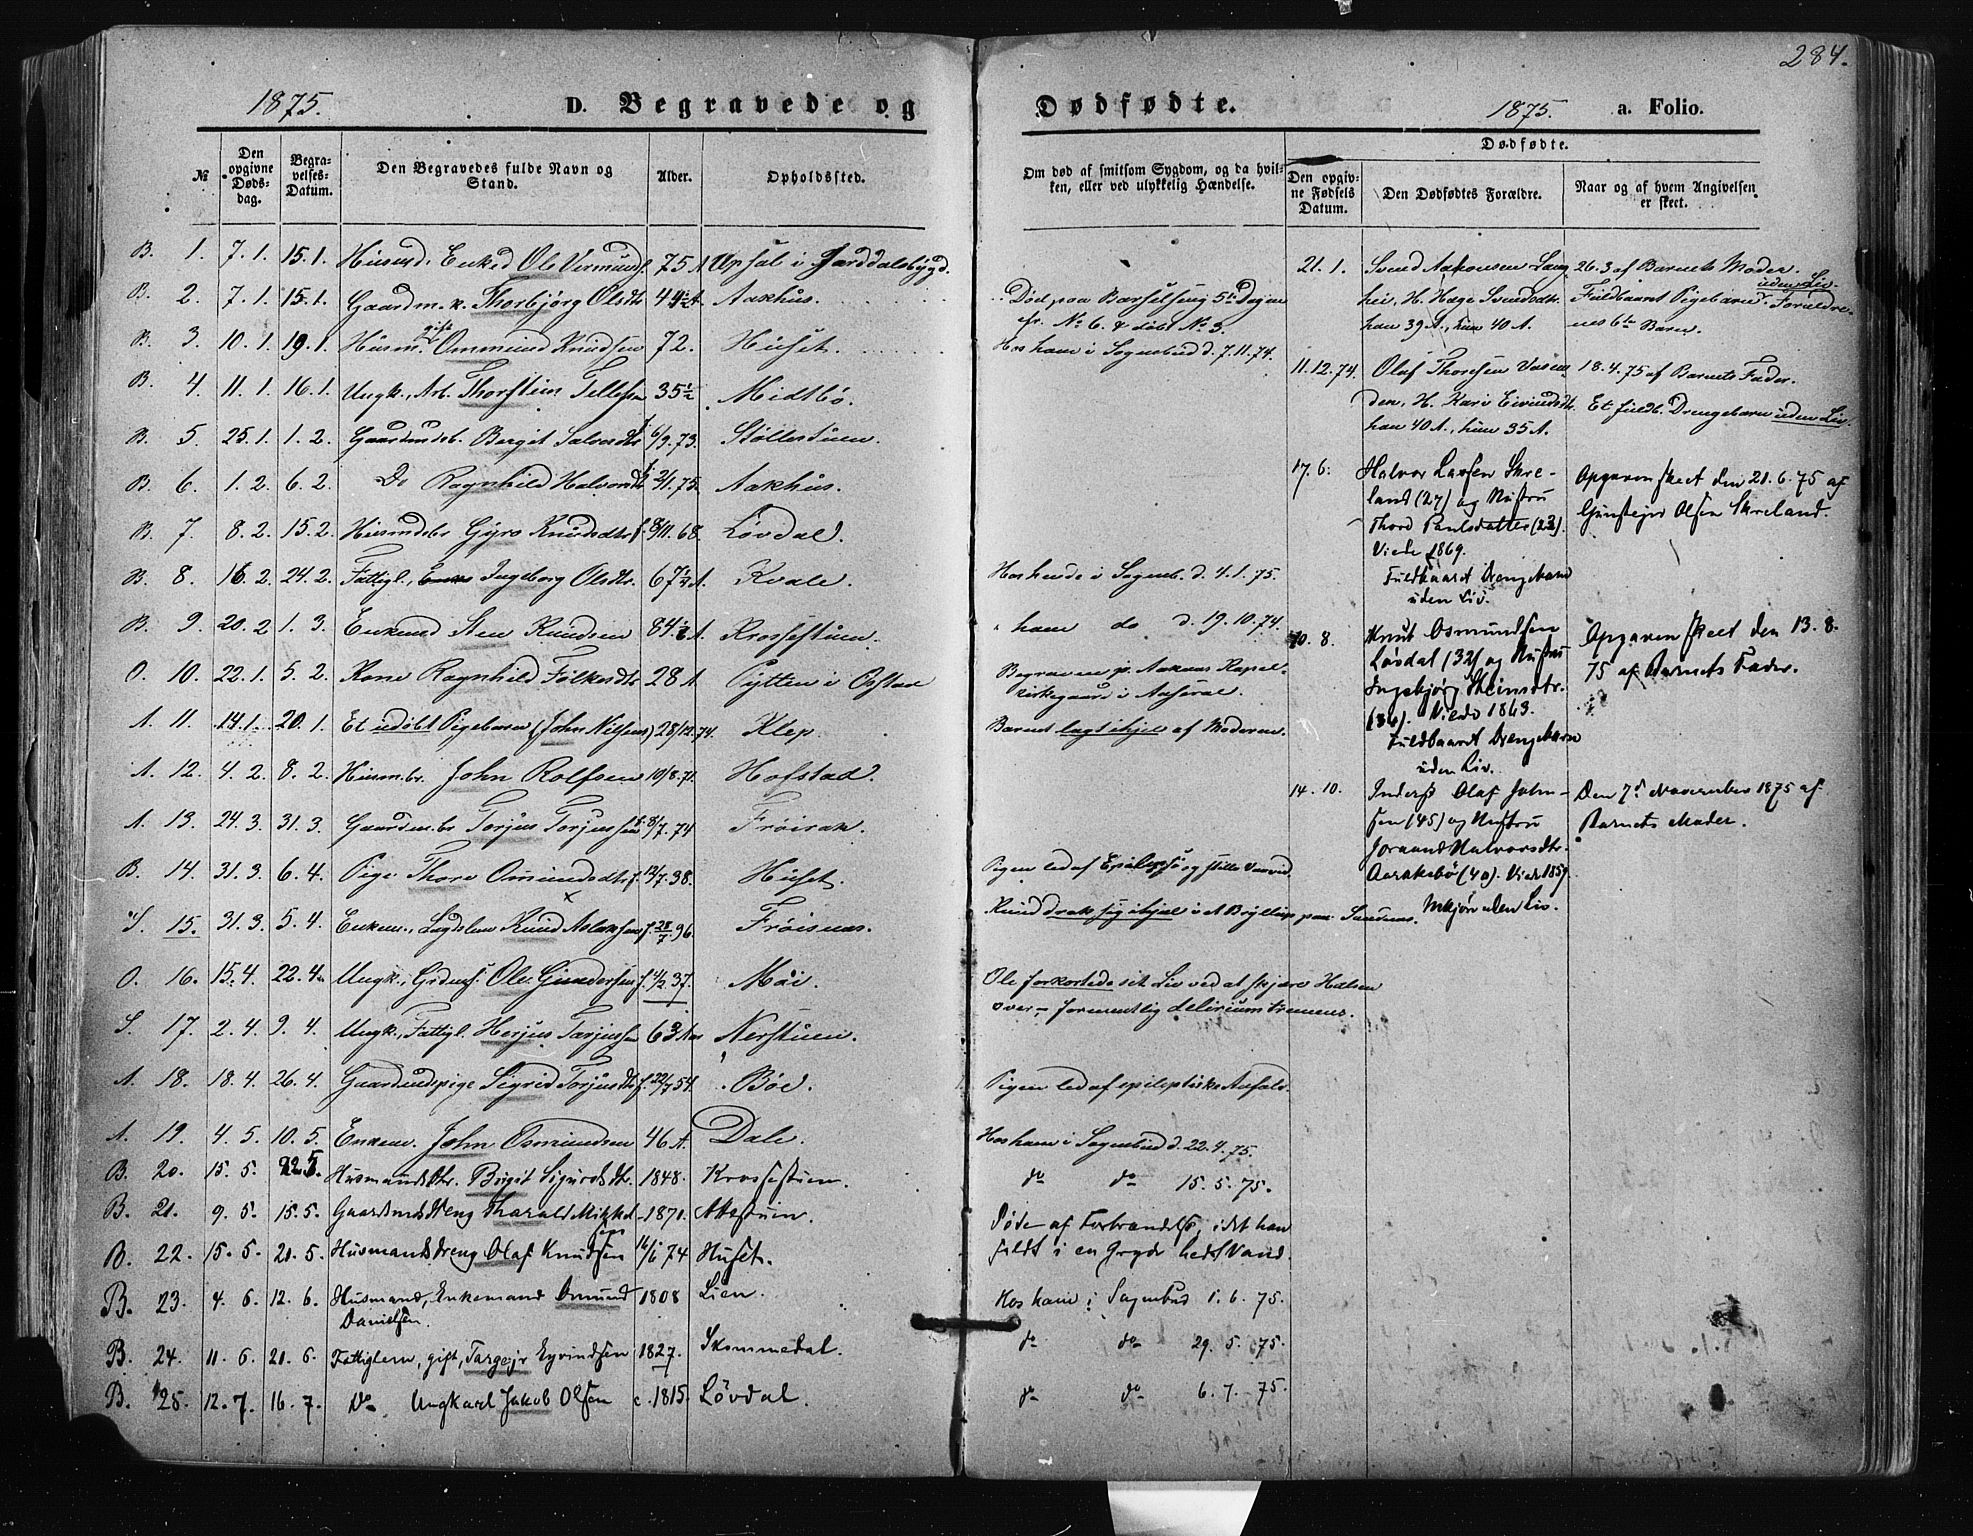 284.
1875.
D. Begravede og
Dødfødte.
1875.
a. Folio.
№
Den opgivne Døds-dag.
Begra-velses-Datum.
Den Begravedes fulde Navn og Stand.
Alder.
Opholdssted.
Om død af smitsom Sygdom, og da hvil-
ken, eller ved ulykkelig Hændelse.
Dødfødte.
Den opgiv-ne Fødsels Datum.
Den Dødfødtes Forældre.
Naar og af hvem Angivelsen er skeet.
B. 1. 7. 1. 15. 1. Husmd. Enked Ole Vermunds. 75 A Upsal i Jarddalsbygd.
B. 2. 7. 1. 15. 1. Gaardm. k. Thorbjørg Olsdtr 44½ A. Aakhus. Død paa Barselseng 5te Dagen
cfr. No 6. & døbt No 3.
B. 3. 10. 1. 19. 1. Husm. gift Ommund Knudsen 72. Huset. Hos ham i Sognebud d. 7. 11. 74.
B. 4. 11. 1. 16. 1. Ungk., Arb. Thorstein Tellefsen 35½ Midtbø.
B. 5. 25. 1. 1. 2. Gaardmdsb. Bergit Salvesdtr f. 6/9. 73. Støllestuen.
B. 6. 1. 2. 6. 2. Do Ragnhild Halvorsdtr f. 2/1. 75. Aakhus.
B. 7. 8. 2. 15. 2. Husmdsbr Gyro Knudsdtr f. 8/11. 68. Løvdal.
B. 8. 16. 2. 24. 2. Fattigl., Ingeborg Olsdtr. 67½ A. Kvale. Hos hende i Sogneb. d. 4. 1. 75.
B. 9. 20. 2 1. 3. Enkemd Sten Knudsen 84½ A. Krossestuen. " ham do d. 19. 10. 74.
O. 10. 22. 1. 5. 2. Kone Ragnhild Folkesdtr 28 A. Pytten i Opstad Begraven p. Aaknes Kapel-
kirkegaard i Aaseral.
A. 11. 14. 1. 20. 1. Et udøbt Pigebarn (John Nilsens) 28/12. 74. Klep. Barnet lagt ihjel af Moderen.
A. 12. 4. 2. 8. 2. Husm.br. John Rolfsen 10/8. 71. Hofstad.
A. 13. 24. 3. 31. 3. Gaardm.br Torjus Torjussen f. 8/7. 74 Frøirak.
B. 14. 31. 3. 6. 4. Pige Thore Omundsdtr f. 12/7. 38. Huset. Pigen led af Epilepsi og stille Vanvid.
S. 15. 31. 3. 5. 4. Enkem., Lægdslem Knud Aslaksen f. 28/7 96. Frøisnes. Knud drak sig ihjel i et Bryllup paa
O. 16. 15. 4. 22. 4. Ungk., Ole Gundersen f. 4/2. 37. Møi. Ole forkortede sit Liv ved at skjære Halsen
over, – formentlig delirium tremens.
S. 17. 2. 4. 9. 4. Ungk., Fattigl. Herjus Tarjeisen 63 Aar Nerstuen.
A. 18. 18. 4. 26. 4. Gaardmdspige Sigrid Torjusdtr f. 22/7 54. Bøe. Pigen led af epileptiske Anfald.
A. 19. 4. 5. 10. 5. Enkem. John Osmundsen 46 A. Dale. Hos ham i Sognebud d. 22. 4. 75.
B. 20. 15. 5. 22. 5. Husmandsdtr. Birgit Sigurdsdtr. 1848. Krossestuen. do do 15. 5. 75.
B. 21. 9. 5. 15. 5. Gaardmdsdreng Tharald Mikkel- 1871. Døde af Forbrændelse, idet han
sen faldt i en Gryde hedt Vand.
B. 22. 15. 5. 21. 5. Husmandsdreng Olaf Knudsen 16/1 74 Huset.
B. 23. 4. 6. 12. 6. Husmand, Enkemand Omund 1808 Lien. Hos ham i Sognebud 1. 6. 75.
Danielsen.
B. 24. 11. 6. 21. 6. Fattiglem, gift, Targejr Eyvindsen 1827. Skommedal. do do 29. 5. 75.
B. 25. 12. 7. 16. 7. Do Ungkarl Jakob Olsen c. 1815. Løvdal. do do 6. 7. 75.
21. 1. Svend Aakonsen Lang- 26. 3 af Barnets Moder.
hei, H. Hæge Svendsdtr. Fuldbaaret Pigebarn uden Liv. Forældre-
han 39 A., hun 40 A. nes 6te Barn.
11. 12. 74. Olaf Thoresen 18. 4. 75 af Barnets Fader.
den, H. Kari Eivindsdtr. Et fuldb. Drengebarn uden Liv.
han 40 A., hun 35 A.
17. 6. Halvor Larsen Skre- Opgaven skeet den 21. 6. 75 af
land (27) og Hustru Gunstejn Olsen Skreland.
Thord Paulsdatter (23).
Viede 1869.
Fuldbaaret Drengebarn
uden Liv.
10. 8. Knut Osmundsen Opgaven skeet den 13. 8.
Løvdal (32) og Hustru 75 af Barnets Fader.
Ingebjørg Steinsdtr.
(36). Viede 1863.
Fuldbaaret Drengebarn
uden Liv.
14. 10. Inderst Olaf John- Den 7de November 1875 af
sen (45) og Hustru Barnets Moder.
Joraand Halvorsdtr.
Aarakebø (40). Viede 1859
uden Liv.